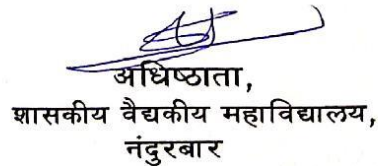 अधिष्ठाता,
शासकीय वैद्यकीय महाविद्यालय,
नंदुरबार